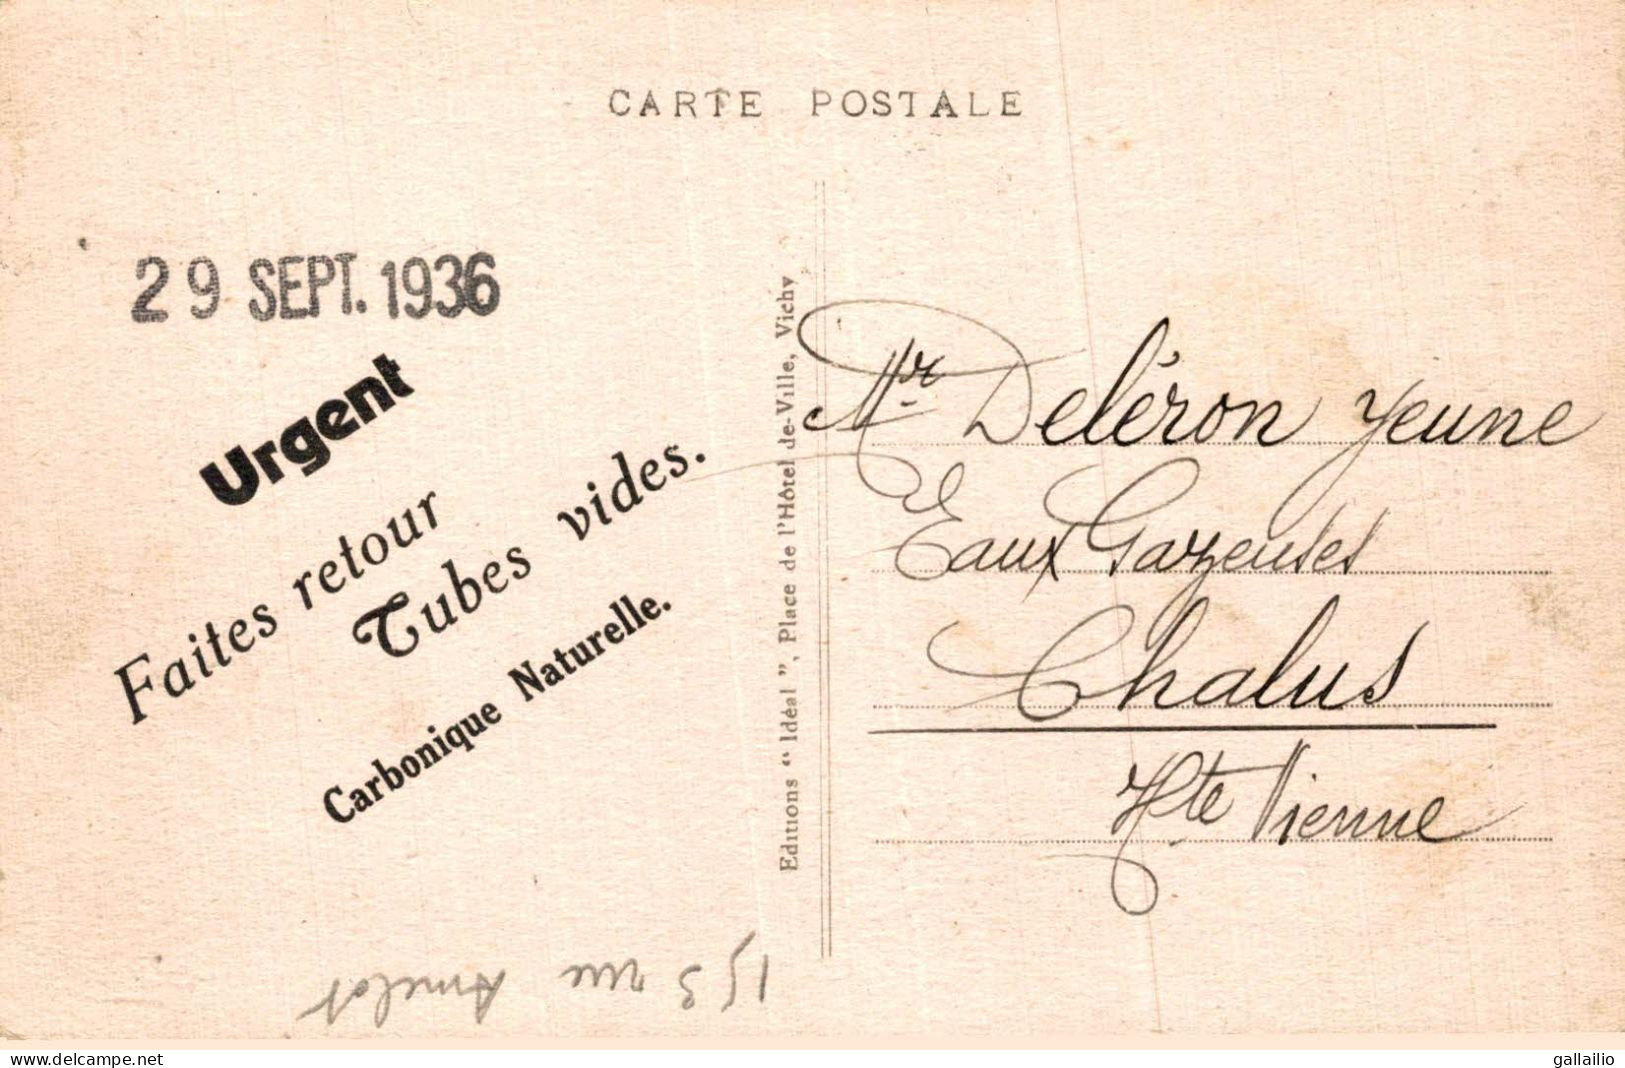 CARTE POSTALE
29 SEPT. 1936
Urgent
Faites retour
Tubes vides.
Carbonique Naturelle.
Editions “ Idéal ”, Place de l'Hôtel de-Ville, Vichy
Mr Deléron jeune
Eaux Gazeuses
Chalus
Hte Vienne
153 rue Amelot
www.delcampe.net
gallailio